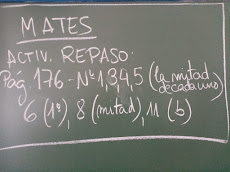 MATES
ACTIV. REPASO:
Pág 176 - Nº 1,3,4,5 (la mitad
de cada uno)
6 (1º), 8 (mitad), 11 (b)